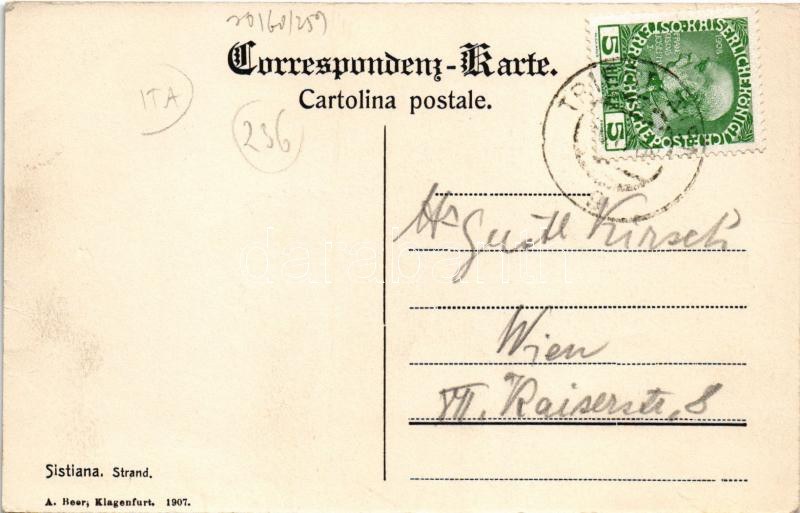 20160/259
Correspondenz-Karte.
Cartolina postale.
ITA
236
KAISERLICHE KÖNIGLICHE
ÖSTERREICHISCHE POST
1908
5 HELLER 5
TRI
Hr Gustl Kirsch
Wien
VII. Kaiserstr, 8
darabanth
Sistiana. Strand.
A. Beer; Klagenfurt. 1907.